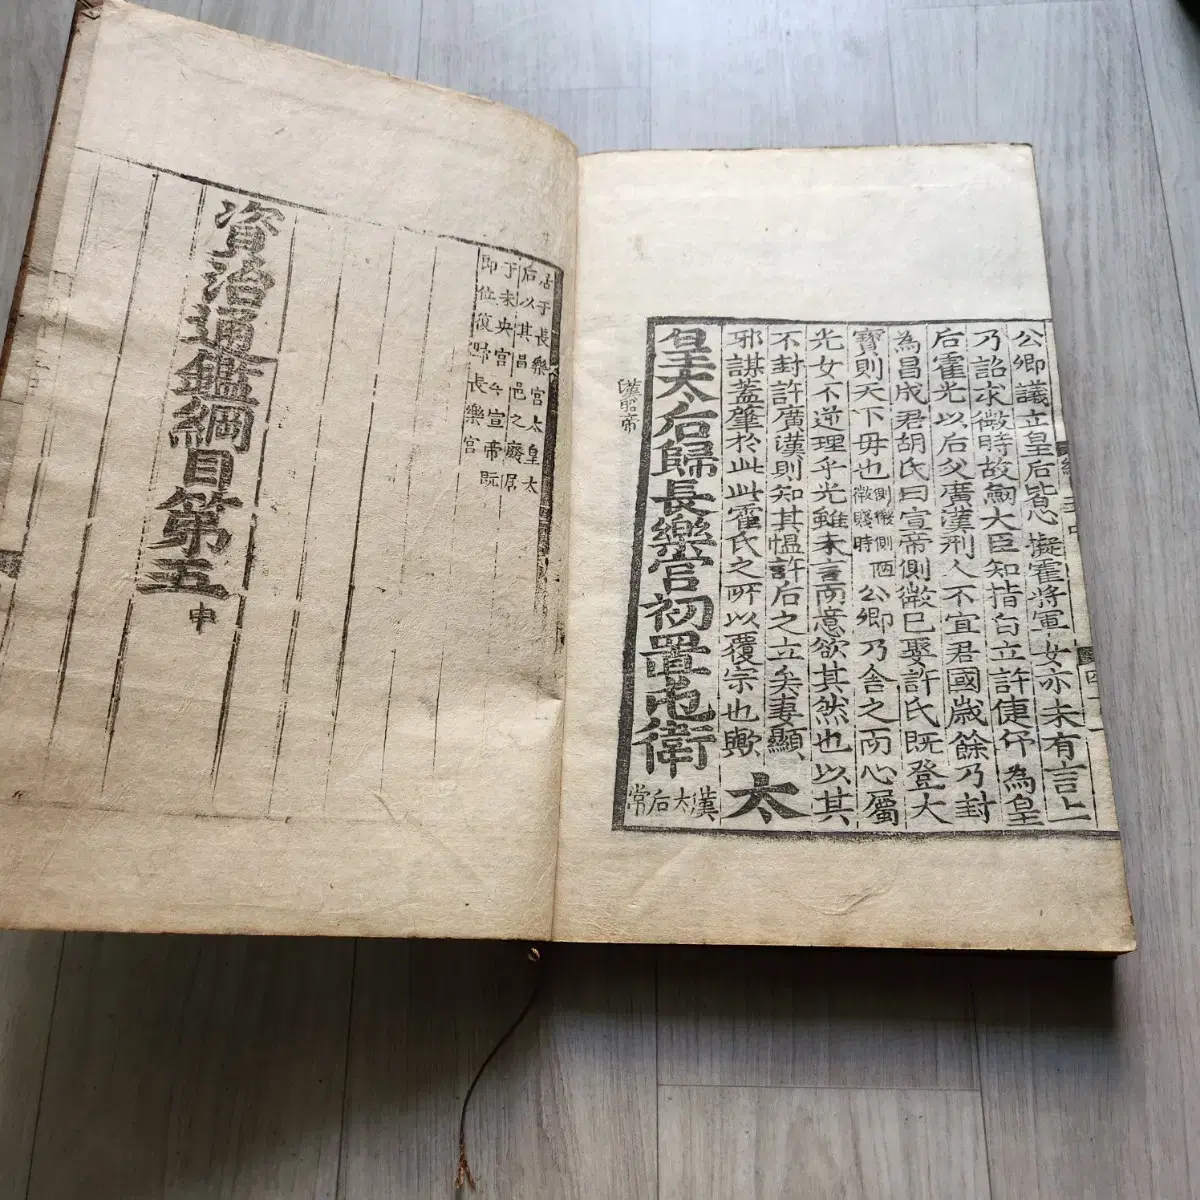 公卿議立皇后皆心擬霍將軍女亦未有言上
乃詔求微時故劒大臣知指白立許倢伃為皇
后霍光以后父廣漢刑人不宜君國歲餘乃封
為昌成君胡氏曰宣帝側微已娶許氏既登大
寶則天下毋也側微側陋微賤時公卿乃舍之而心屬
光女不逆理乎光雖未言而意欲其然也以其
不封許廣漢則知其愠許后之立矣妻顯
邪謀蓋肇於此此霍氏之所以覆宗也歟 太
皇太后歸長樂宫初置屯衛漢太后常
漢宣帝
居于長樂宮太皇太
后以其昌邑之廢居
于未央宮今宣帝既
即位復歸長樂宮
資治通鑑綱目第五
申